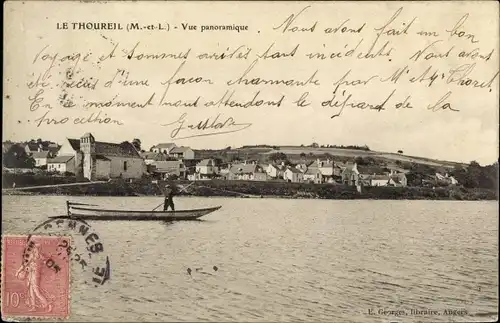 LE THOUREIL (M.-et-L.) — Vue panoramique
Nous avons fait un bon
Voyage et sommes arrivés sans incidents. Nous avons
été reçus d'une façon charmante par M. et Mme Thorel.
En ce moment nous attendons le départ de la
procession
Gustave
10
RENNES
E. Georges, libraire, Angers